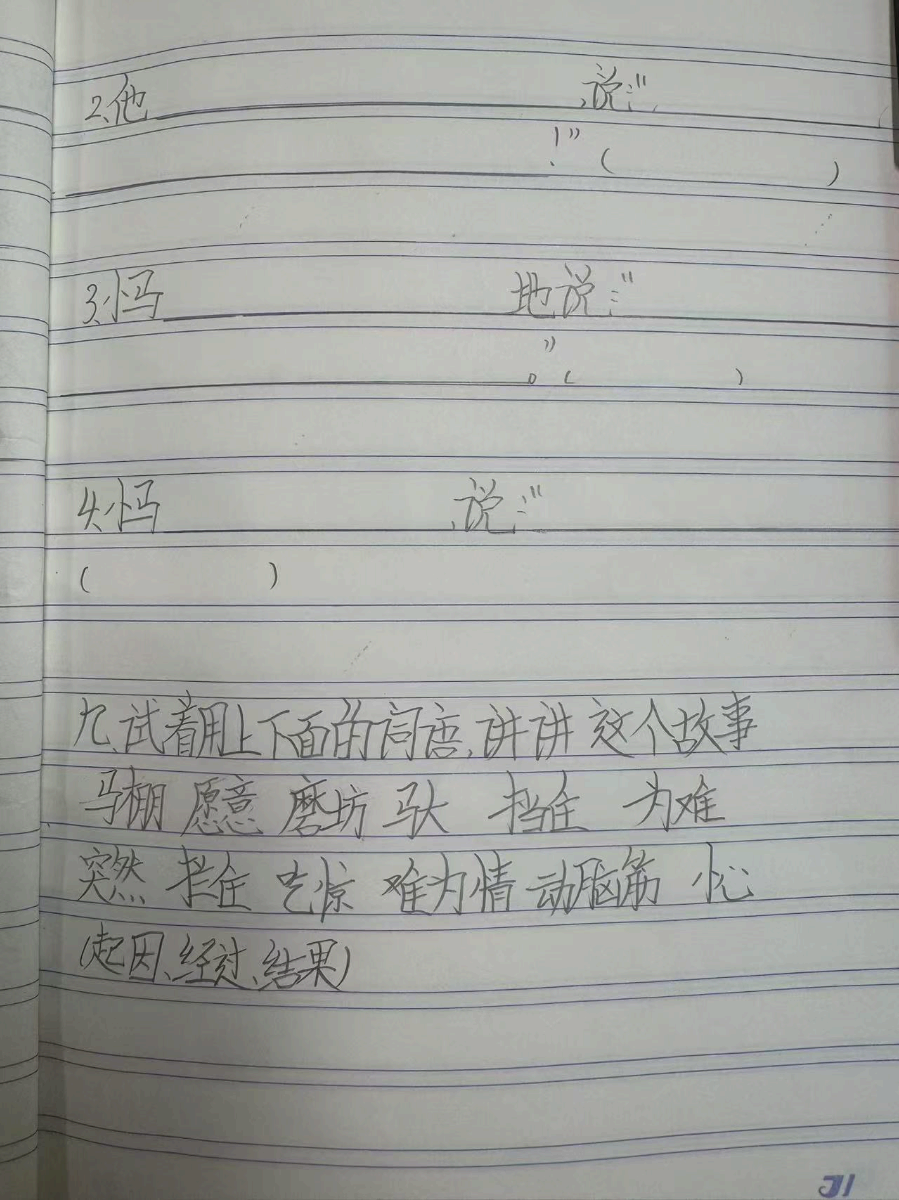 2、他 说:“
!”( )
3、小马 地说:“
”。( )
4、小马 说:“
( )
九、试着用上下面的词语,讲讲这个故事
马棚 愿意 磨坊 驮 挡住 为难
突然 拦住 吃惊 难为情 动脑筋 小心
(起因、经过、结果)
31